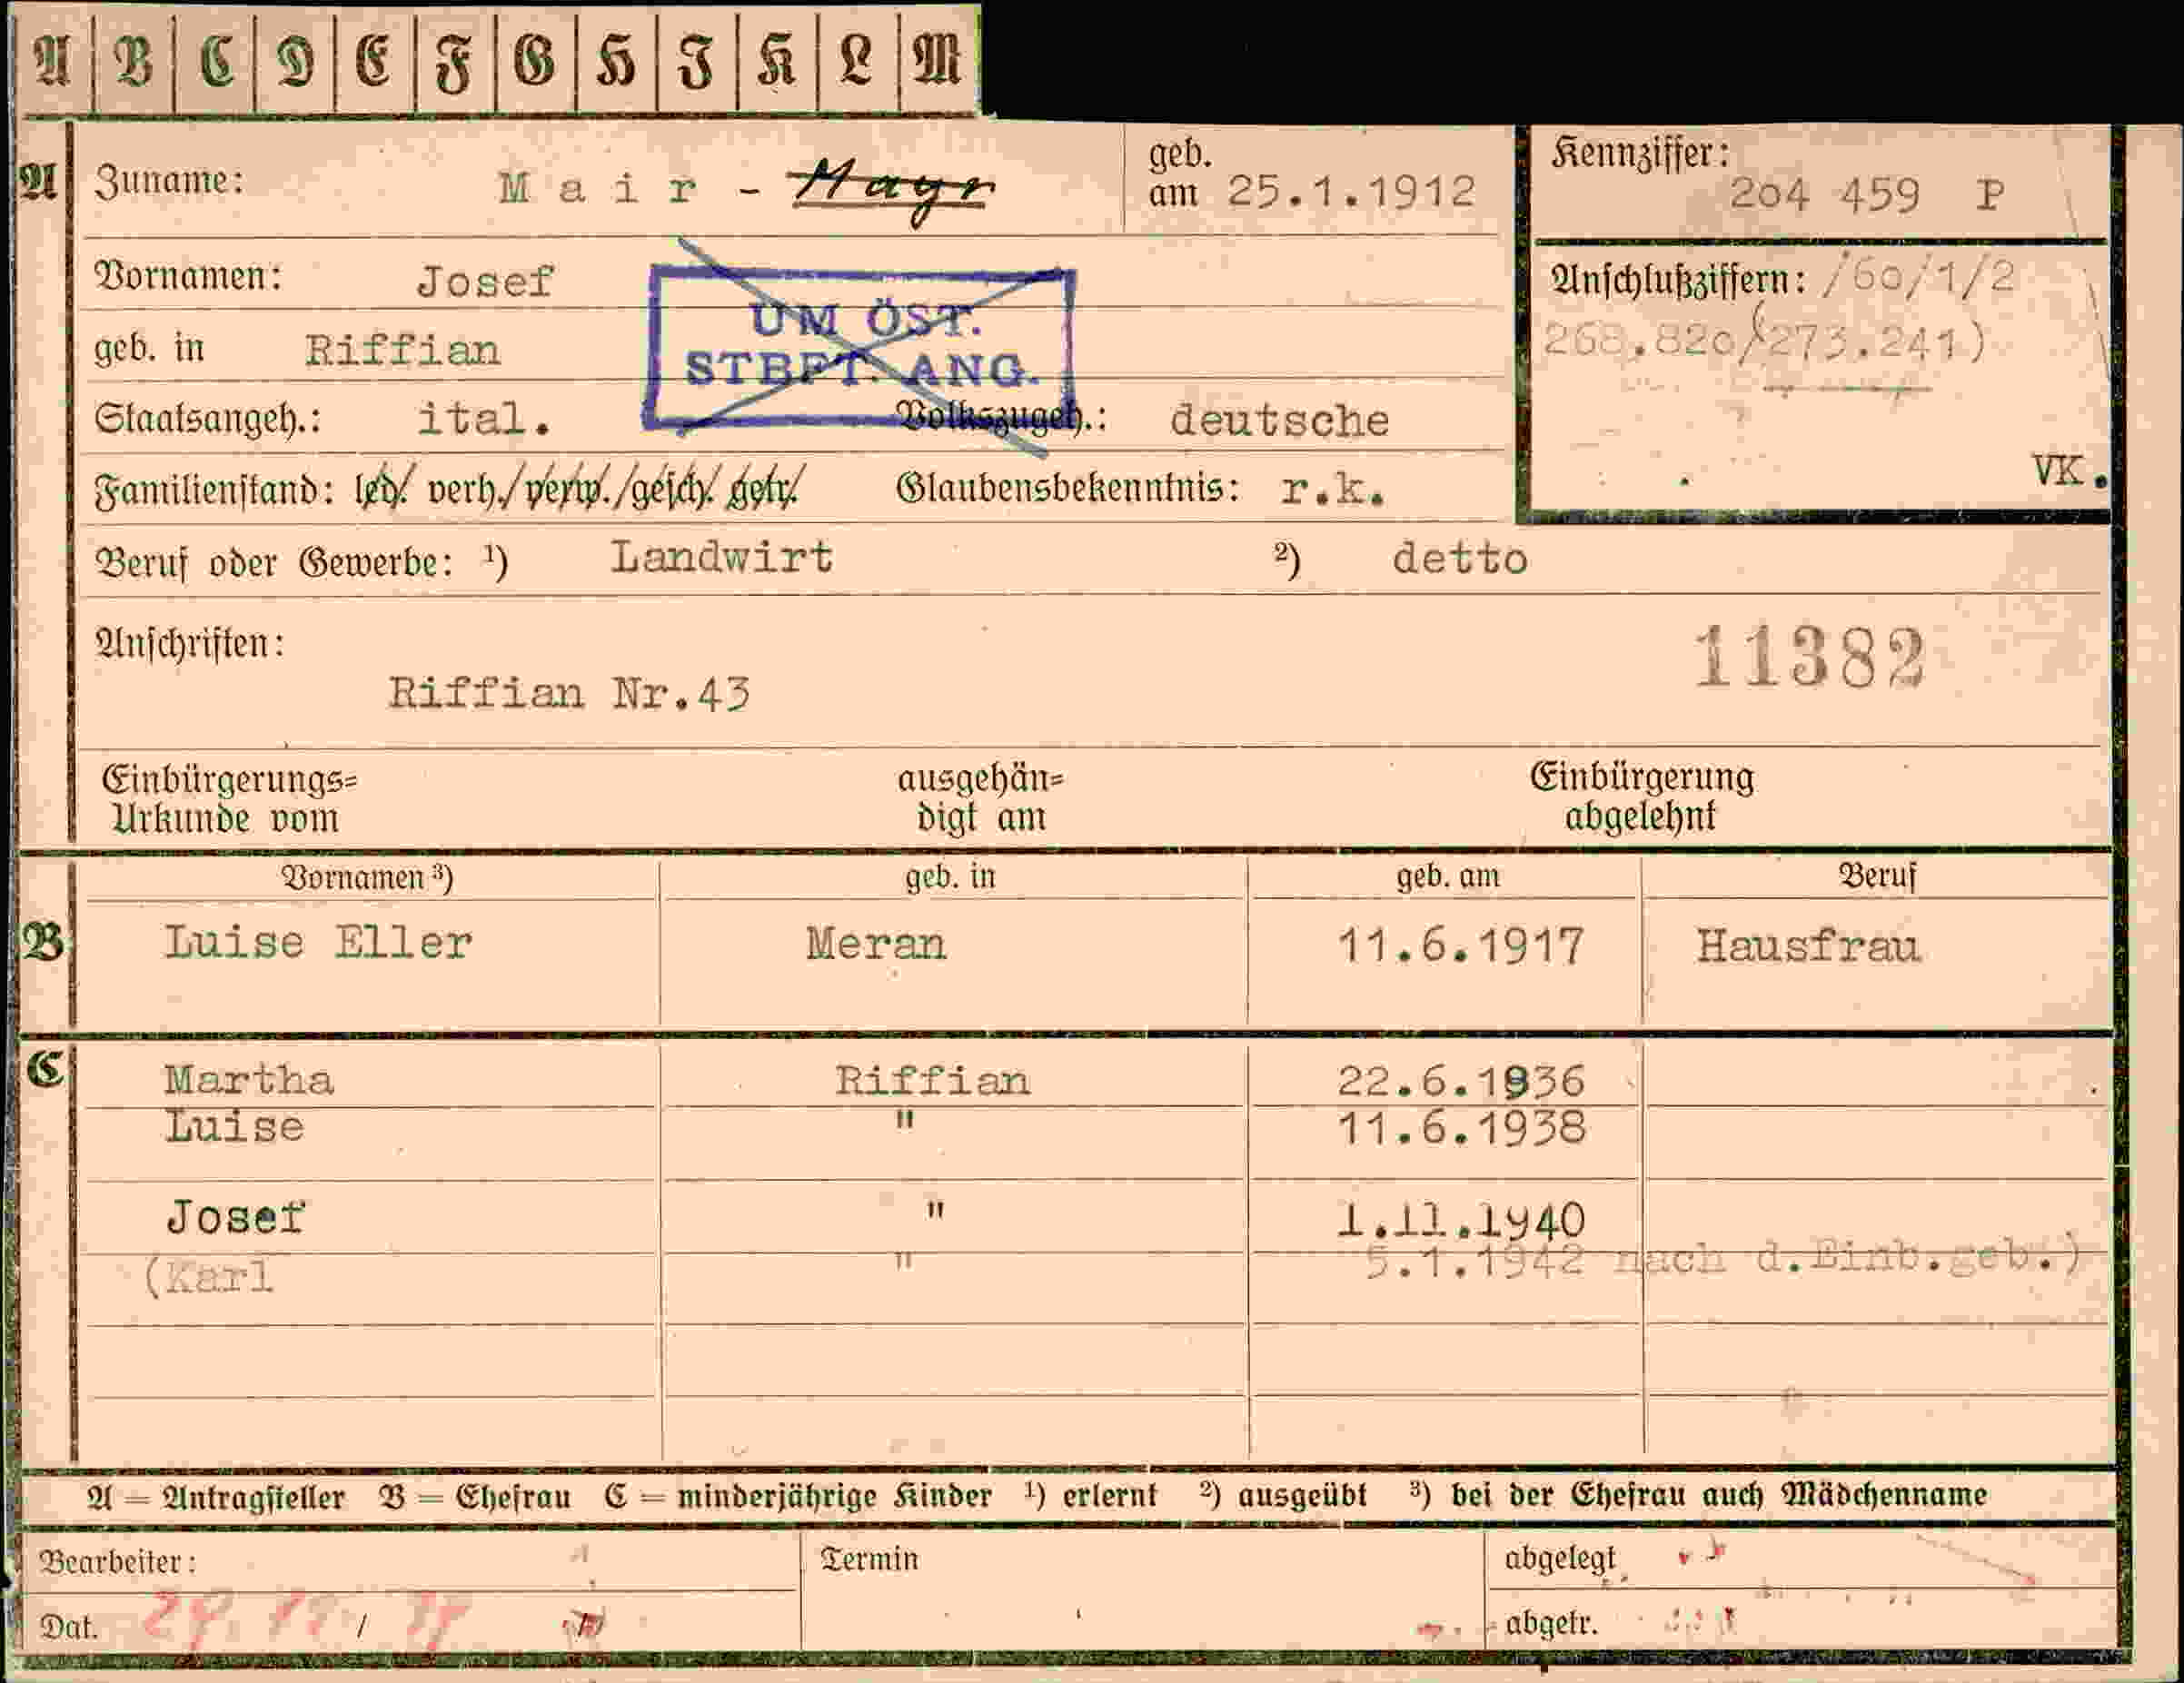 A B C D E F G H I K L M
A Zuname: Mair - Mayr geb. am 25.1.1912 Kennziffer: 204 459 P
Vornamen: Josef Anschlußziffern: /60/1/2
UM ÖST.
geb. in Riffian 268.820/(273.241)
STBFT. ANG.
Staatsangeh.: ital. Volkszugeh.: deutsche
VK.
Familienstand: led./ verh./verw./gesch/ getr/ Glaubensbekenntnis: r.k.
Beruf oder Gewerbe: ¹) Landwirt ²) detto
Anschriften: 11382
Riffian Nr.43
Einbürgerungs= ausgehän= Einbürgerung
Urkunde vom digt am abgelehnt
Vornamen ³) geb. in geb. am Beruf
B Luise Eller Meran 11.6.1917 Hausfrau
C Martha Riffian 22.6.1936
Luise " 11.6.1938
Josef " 1.11.1940
(Karl " 5.1.1942 nach d.Einb.geb.)
A = Antragsteller B = Ehefrau C = minderjährige Kinder ¹) erlernt ²) ausgeübt ³) bei der Ehefrau auch Mädchenname
Bearbeiter: Termin abgelegt
Dat. abgetr.